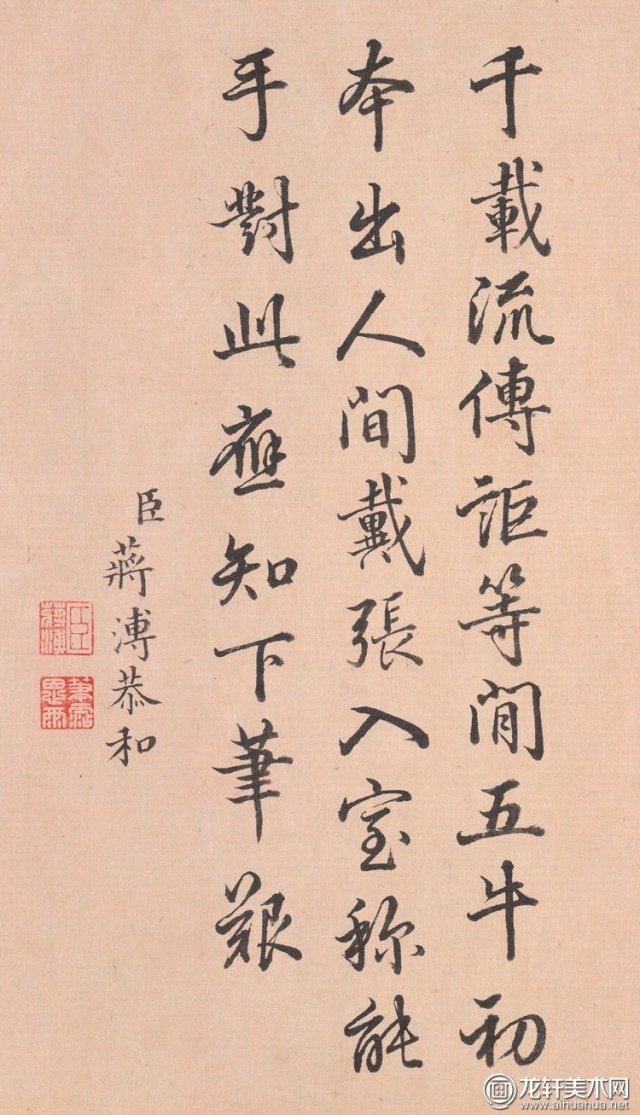 千載流傳詎等閒五牛初
本出人間戴張入室稱能
手對此應知下筆艱
臣蔣溥恭和
臣蔣溥
筆霑恩雨
龙轩美术网
www.aihuahua.net